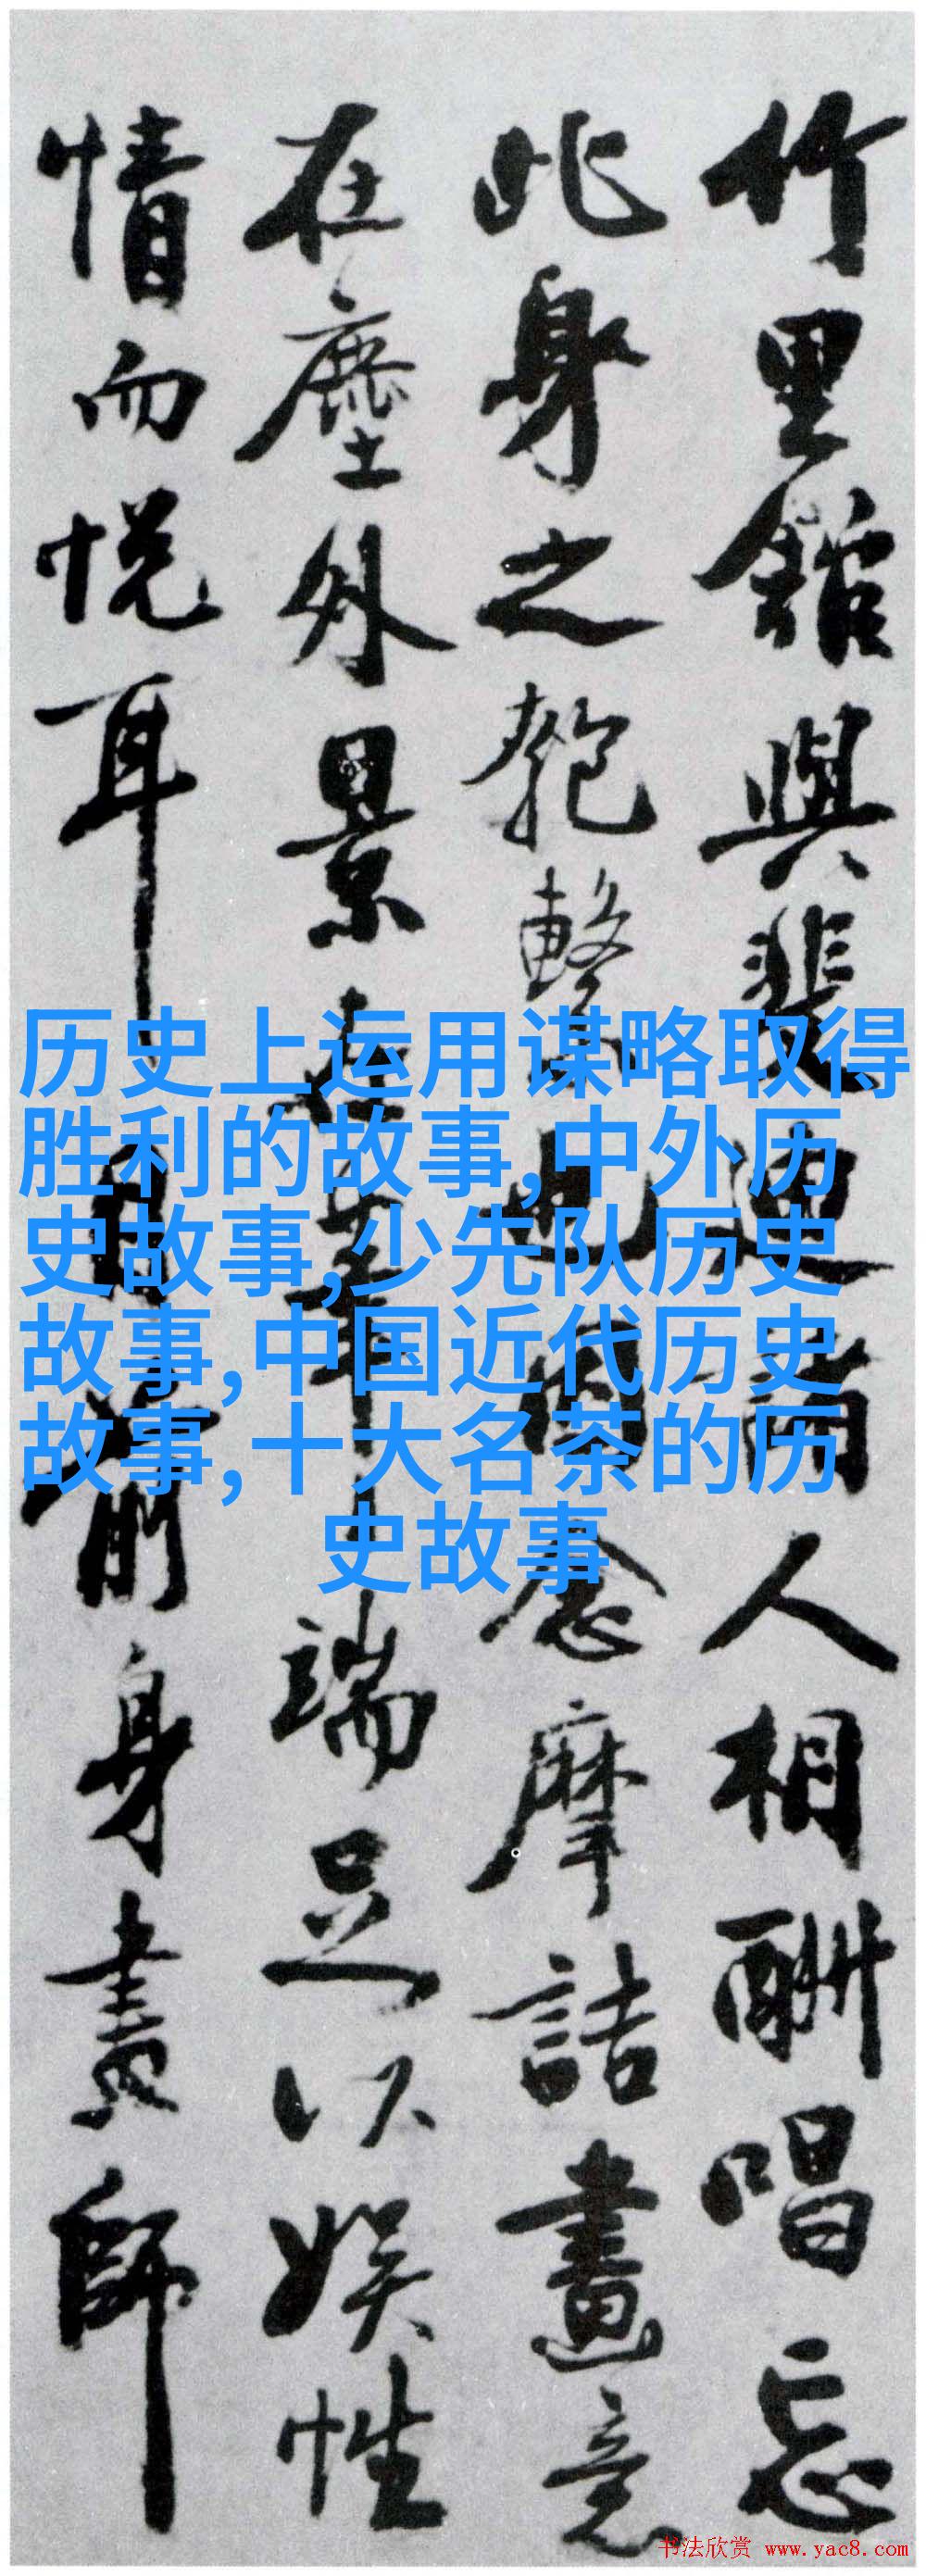 竹里館與裴迪諸人相酬唱忘
此身之匏繫也因念摩詰畫意
在塵外景在筆端足以娛性
情而悅耳目前身畫師
历史上运用谋略取得
胜利的故事,中外历
史故事,少先队历史
故事,中国近代历史
故事,十大名茶的历
史故事
书法欣赏 www.yac8.com